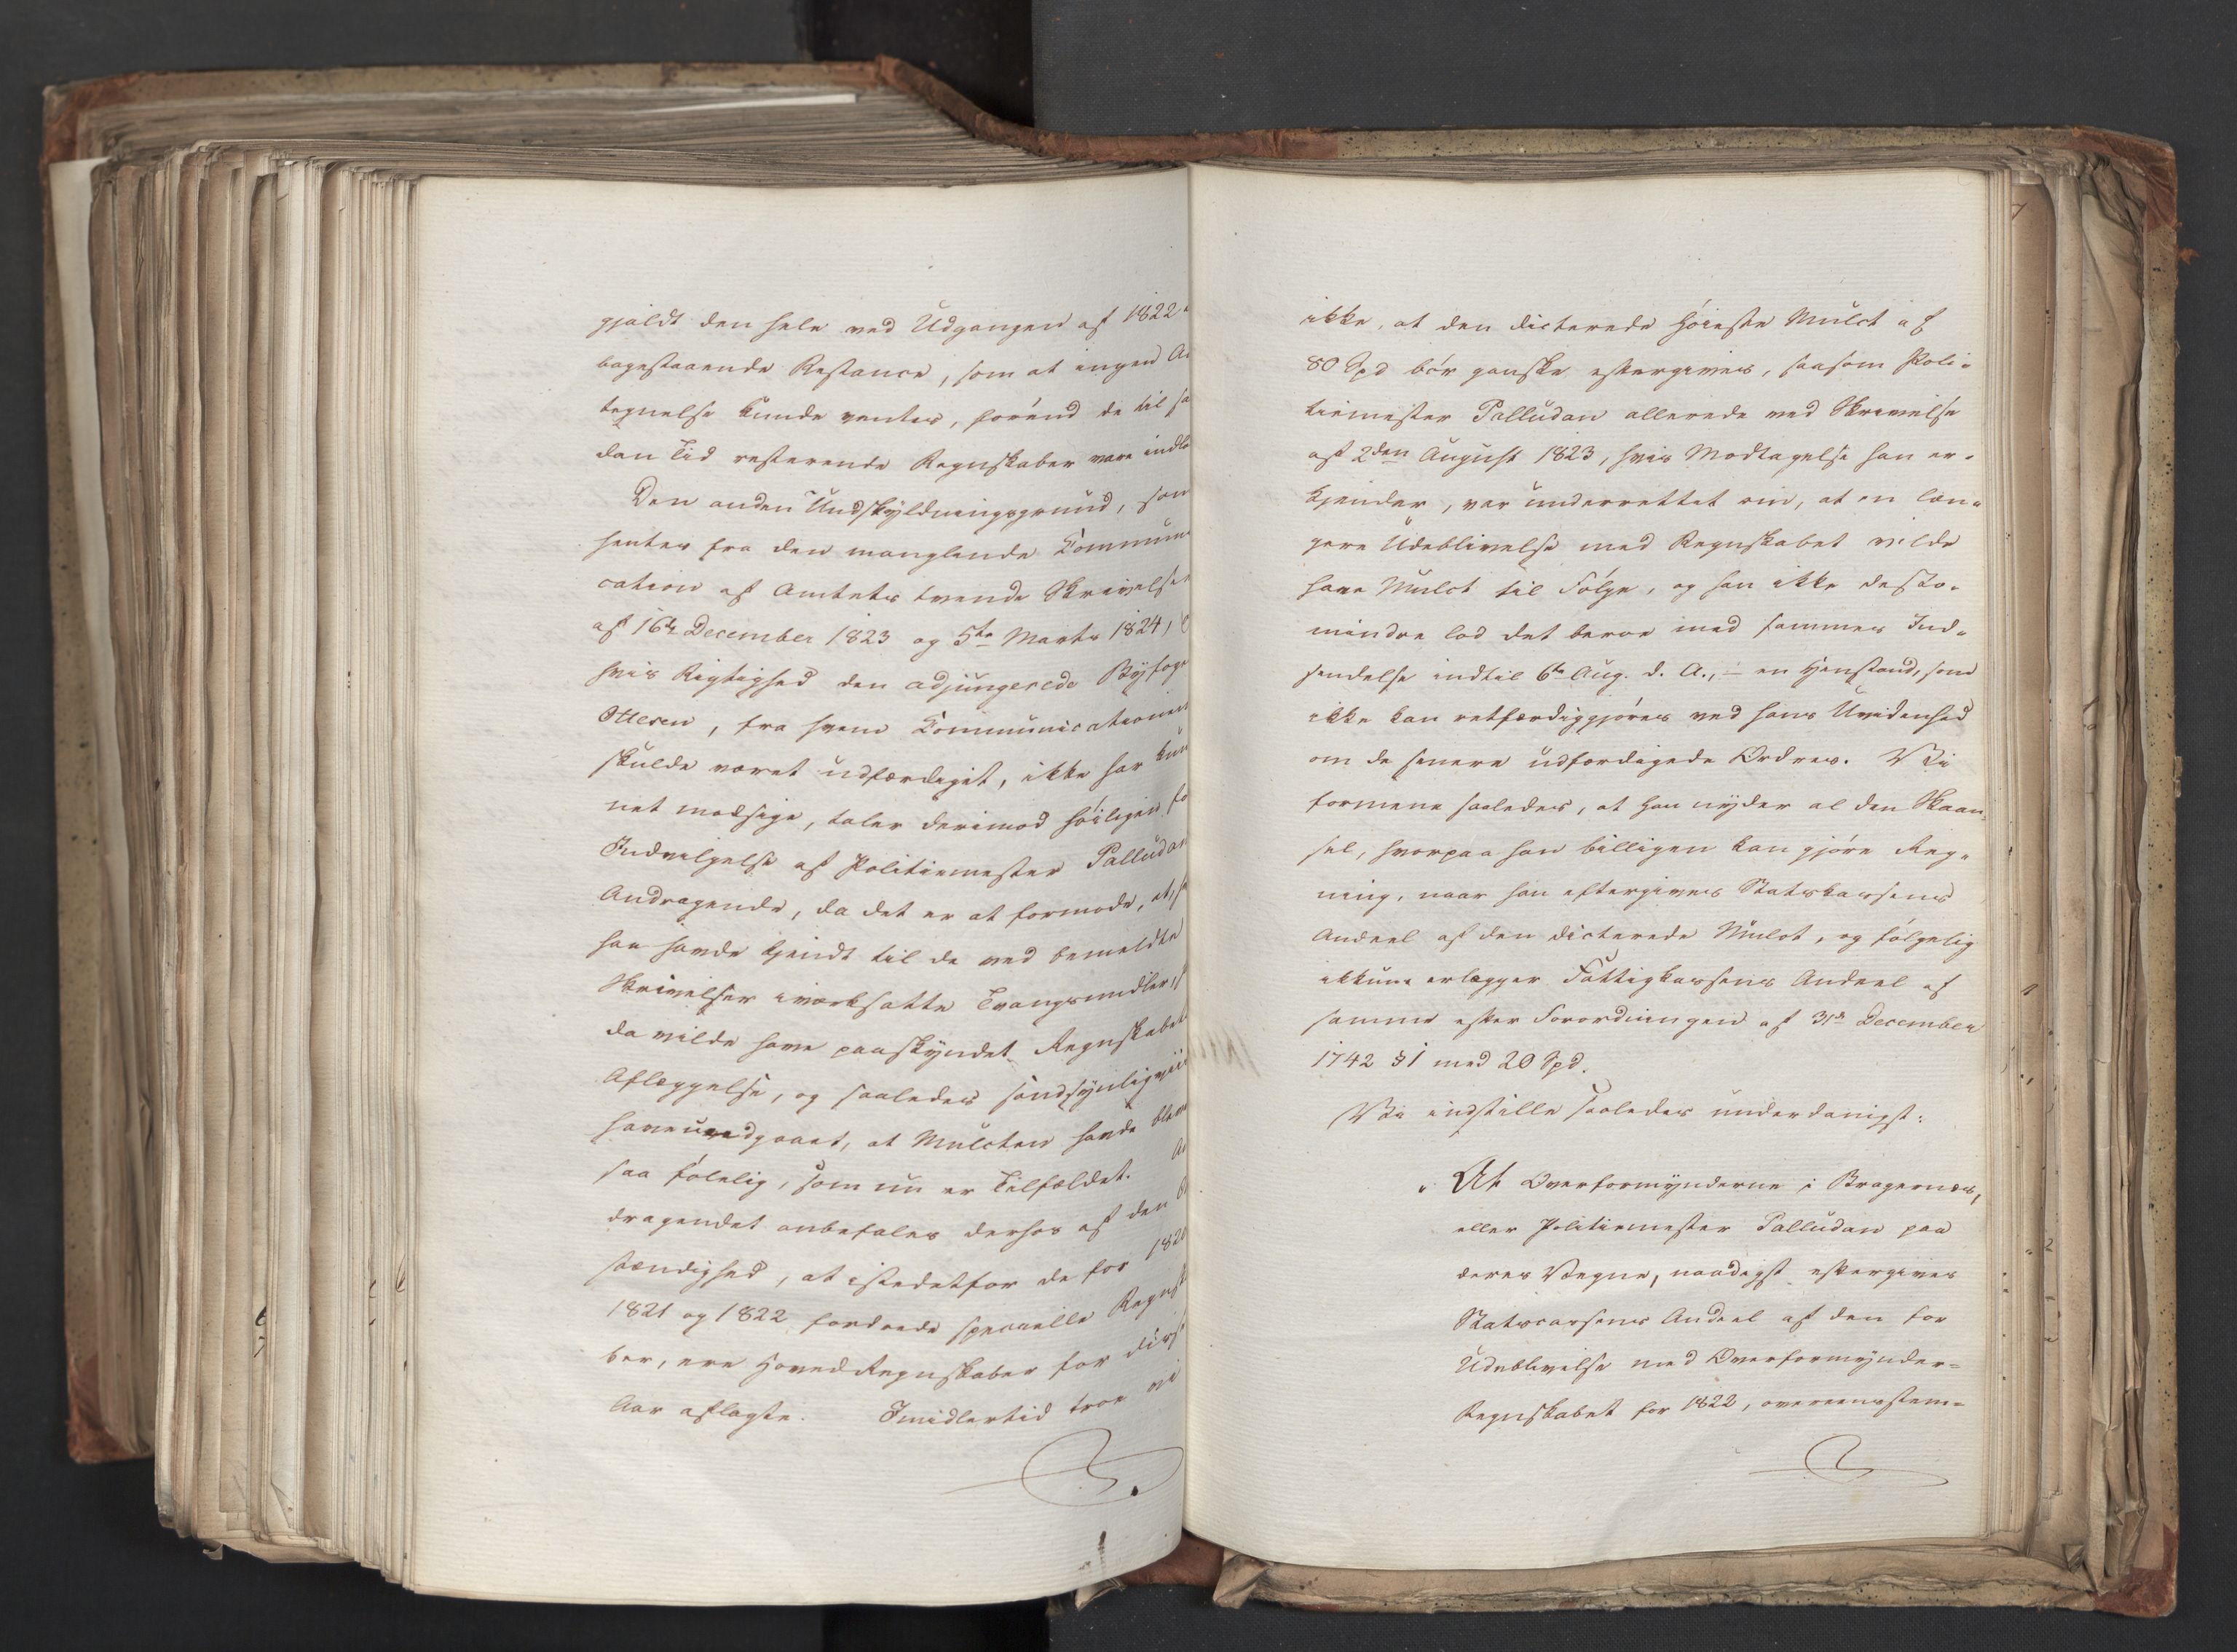 gjaldt den hele ved Udgangen af 1822
bagestaaende Restance, som at ingen
tegnelse kunde ventes, forend de til
dan Tid resterende Regnskaber vare indle
Den anden Undskyldningsgrund, som
hentes fra den manglende Commun
cation af Amtets tvende Skrivelser
af 16de December 1823 og 5te Marts 1824,
hvis Rigtighed den adjungerede Byfoge
Ottesen, fra hvem Communicationen
skulde været udfærdiget, ikke har kun
net modsige, taler derimod høiligen fo
Indvilgelse af Politiemester Palludan
Andragende, da det er at formode, at,
han havde kjendt til de ved bemeldte
Skrivelser iværksatte Tvangsmidler,
da vilde have paaskyndet Regnskabet
Aflæggelse, og saaledes sandsynligviis
have undgaaet, at Mulcten havde bleve
saa følelig, som nu er Tilfældet. An
dragendet anbefales derhos af den
stændighed, at istedetfor de for 1820
1821 og 1822 fordrede specielle Regnsk
ber, ere Hoved Regnskaber for disse
Aar aflagte. Imidlertid troe vi
ikke, at den dicterede høieste Mulct af
80 Spd bør ganske eftergives, saasom Poli-
tiemester Palludan allerede ved Skrivelse
af 2den August 1823, hvis Modtagelse han er-
kjender, var underrettet om, at en læn-
gere Udeblivelse med Regnskabet vilde
have Mulct til Følge, og han ikke desto-
mindre lod det beroe med sammes Ind-
sendelse indtil 6te Aug. d. A., - en Henstand, som
ikke kan retfærdiggjøres ved hans Uvidenhed
om de senere udfærdigede Ordres. Vi
formene saaledes, at han nyder al den Skaan-
sel, hvorpaa han billigen kan gjøre Reg-
ning, naar han eftergives Statskassens
Andeel af den dicterede Mulct, og følgelig
ikkun erlægger Fattigkassens Andeel af
samme efter Forordningen af 31te December
1742 § 1 med 20 Spd.
Vi indstille saaledes underdanigst:
At Overformynderne i Bragernæs,
eller Politiemester Palludan paa
deres Vegne, naadigst eftergives
Statscassens Andeel af den for
Udeblivelse med Overformynder-
Regnskabet for 1822, overeensstem-